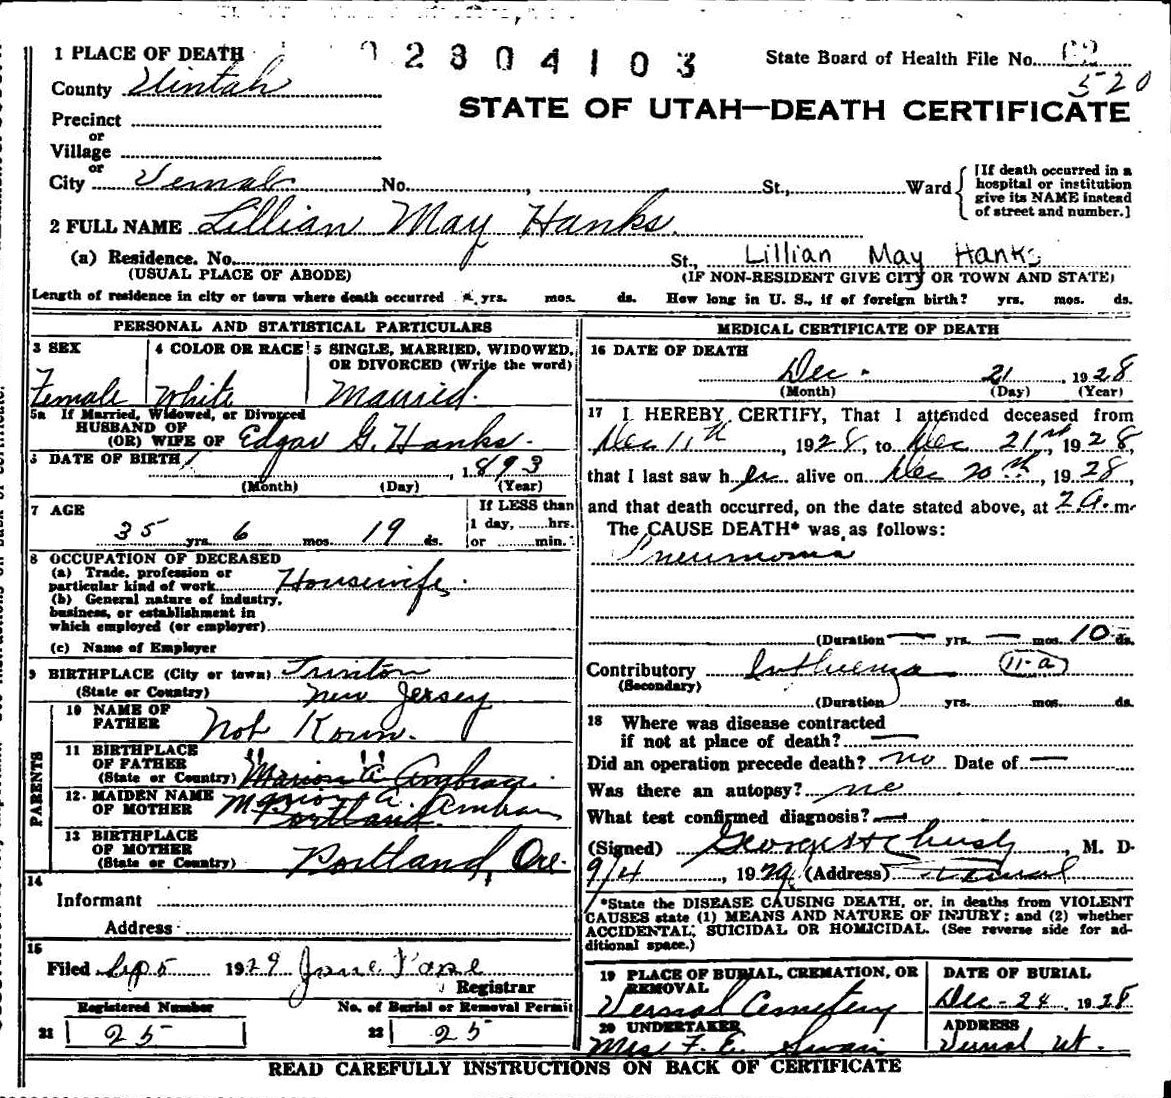 2 3 0 4 1 0 3
1 PLACE OF DEATH
State Board of Health File No.
520
County Uintah
STATE OF UTAH—DEATH CERTIFICATE
Precinct
or
Village
or
City Vernal No. , St., Ward
[If death occurred in a hospital or institution give its NAME instead of street and number.]
2 FULL NAME Lillian May Hanks
(a) Residence. No. St., Lillian May Hanks
(USUAL PLACE OF ABODE) (IF NON-RESIDENT GIVE CITY OR TOWN AND STATE)
Length of residence in city or town where death occurred yrs. mos. ds. How long in U. S., if of foreign birth? yrs. mos. ds.
PERSONAL AND STATISTICAL PARTICULARS
3 SEX 4 COLOR OR RACE 5 SINGLE, MARRIED, WIDOWED,
OR DIVORCED (Write the word)
Female White Married.
5a If Married, Widowed, or Divorced
HUSBAND OF
(OR) WIFE OF Edgar G. Hanks.
6 DATE OF BIRTH 1893
(Month) (Day) (Year)
7 AGE
If LESS than
35 yrs. 6 mos. 19 ds. 1 day, hrs.
or min.
8 OCCUPATION OF DECEASED
(a) Trade, profession or
particular kind of work Housewife.
(b) General nature of industry,
business, or establishment in
which employed (or employer)
(c) Name of Employer
9 BIRTHPLACE (City or town) Trinton
(State or Country) New Jersey
PARENTS
10 NAME OF
FATHER Not Known.
11 BIRTHPLACE
OF FATHER
(State or Country) Marion A
12. MAIDEN NAME
OF MOTHER Marion A.
Portland
13 BIRTHPLACE
OF MOTHER
(State or Country) Portland, Ore.
14
Informant
Address
15
Filed Sep 5 1929 Jane Pope
Registrar
Registered Number No. of Burial or Removal Permit
21 25 22 25
MEDICAL CERTIFICATE OF DEATH
16 DATE OF DEATH
Dec. 21, 1928
(Month) (Day) (Year)
17 I HEREBY CERTIFY, That I attended deceased from
Dec 11th, 1928, to Dec 21st, 1928,
that I last saw her alive on Dec 20th, 1928,
and that death occurred, on the date stated above, at 2 A. m.
The CAUSE DEATH* was as follows:
Pneumonia
(Duration — yrs. — mos. 10 ds.
Contributory Influenza 11-a
(Secondary)
(Duration yrs. mos. ds.
18 Where was disease contracted
if not at place of death? —
Did an operation precede death? no Date of —
Was there an autopsy? no
What test confirmed diagnosis? —
(Signed) George H , M. D.
9/4, 1929 (Address) Vernal
*State the DISEASE CAUSING DEATH, or, in deaths from VIOLENT
CAUSES state (1) MEANS AND NATURE OF INJURY; and (2) whether
ACCIDENTAL, SUICIDAL OR HOMICIDAL. (See reverse side for ad-
ditional space.)
19 PLACE OF BURIAL, CREMATION, OR
REMOVAL
Vernal Cemetery
DATE OF BURIAL
Dec-24, 1928
20 UNDERTAKER
Mrs F. E. Swain
ADDRESS
Vernal Ut.
READ CAREFULLY INSTRUCTIONS ON BACK OF CERTIFICATE